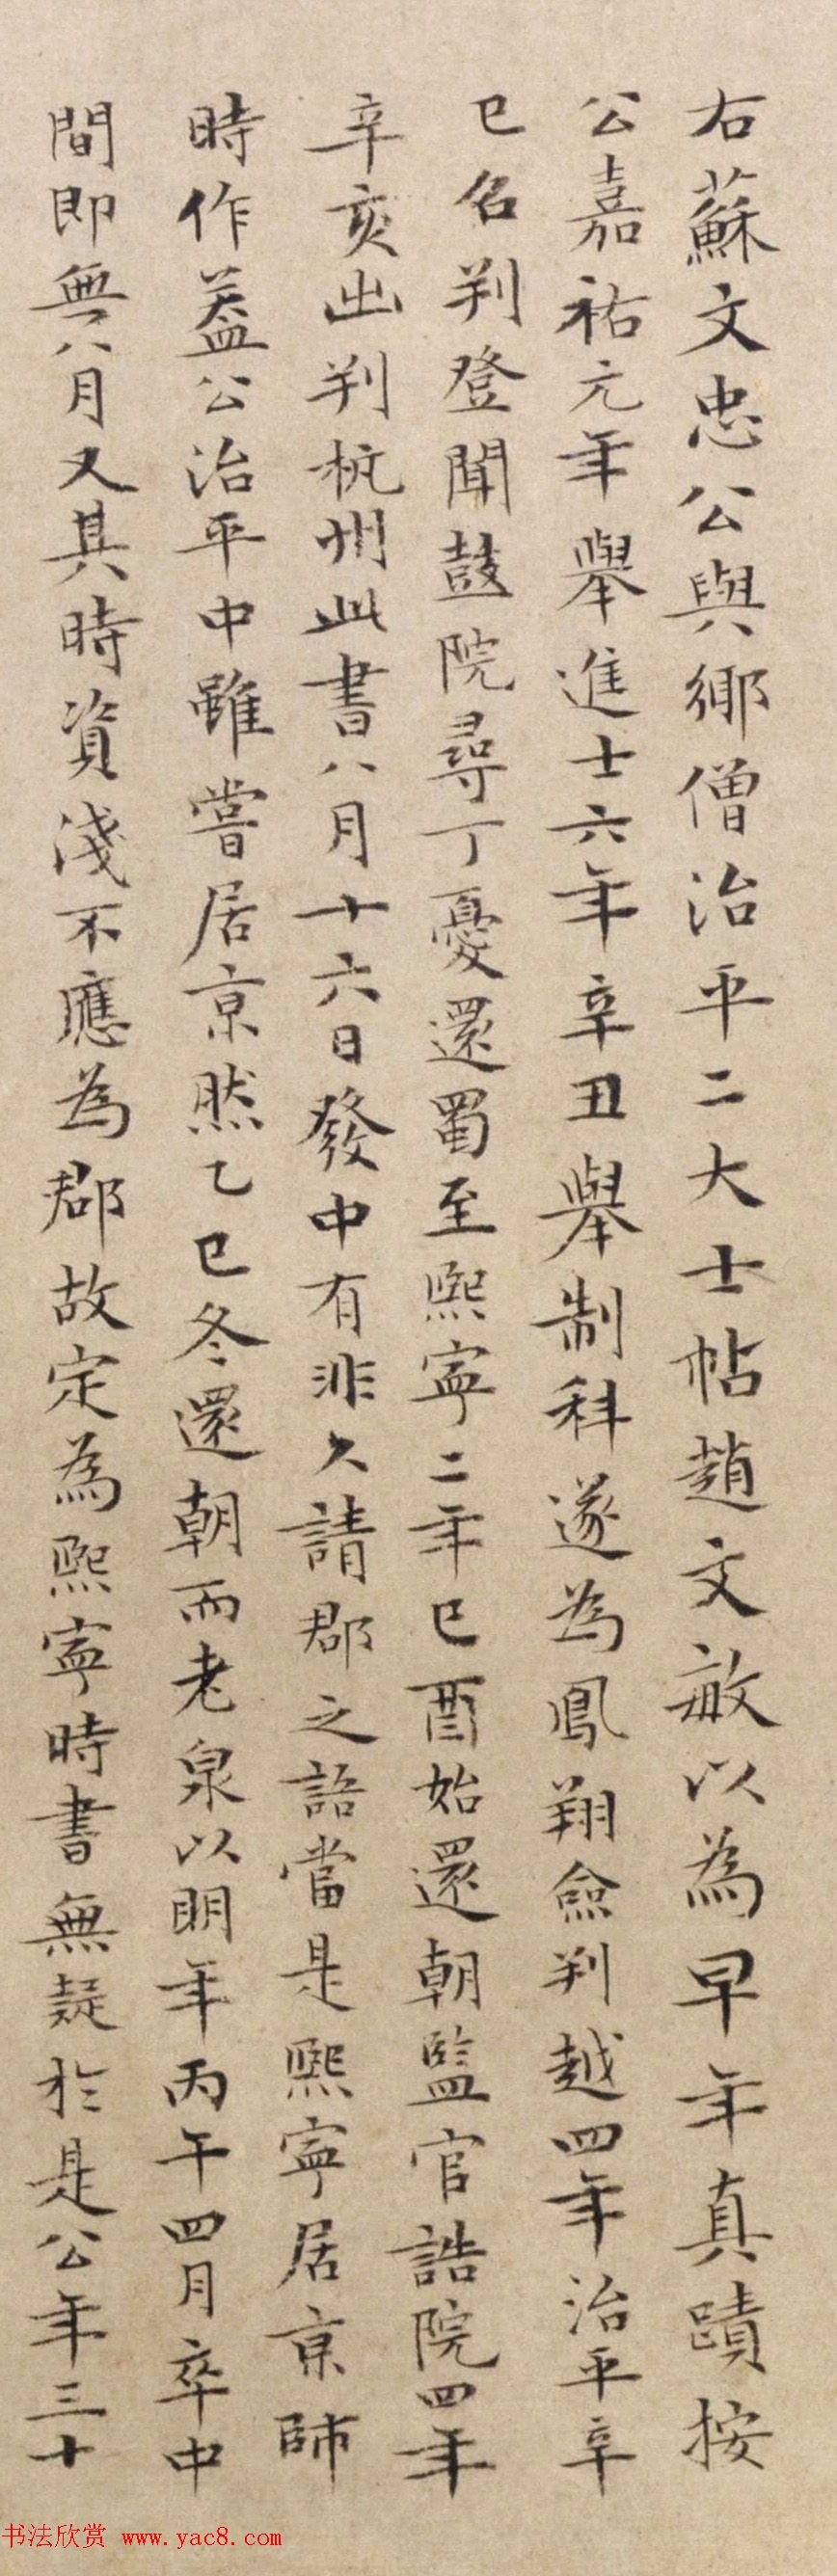 右蘇文忠公與鄉僧治平二大士帖趙文敏以為早年真蹟按
公嘉祐元年舉進士六年辛丑舉制科遂為鳳翔僉判越四年治平辛
巳名判登聞鼓院尋丁憂還蜀至熙寧二年已酉始還朝監官誥院四年
辛亥出判杭州此書八月十六日發中有非久請郡之語當是熙寧居京師
時作葢公治平中雖嘗居京然乙巳冬還朝而老泉以明年丙午四月卒中
間即無八月又其時資淺不應為郡故定為熙寧時書無疑於是公年三十
书法欣赏 www.yac8.com